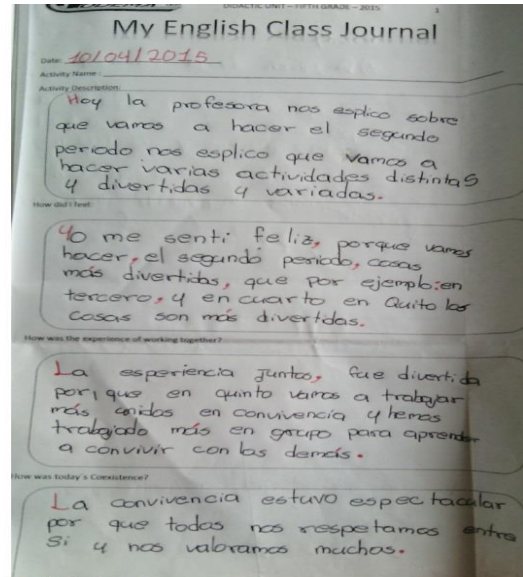 DIDACTIC UNIT – FIFTH GRADE – 2015
1
My English Class Journal
Date: 10/04/2015
Activity Name:
Activity Description:
Hoy la profesora nos esplico sobre
que vamos a hacer el segundo
periodo nos esplico que vamos a
hacer varias actividades distintas
y divertidas y variadas.
How did I feel:
Yo me senti feliz, porque vamos
hacer, el segundo periodo, cosas
más divertidas, que por ejemplo: en
tercero, y en cuarto en Quito las
cosas son más divertidas.
How was the experience of working together?
La esperiencia juntas, fue divertida
por que en quinto vamos a trabajar
más unidas en convivencia y hemos
trabajado más en grupo para aprender
a convivir con las demás.
How was today's Coexistence?
La convivencia estuvo espectacular
por que todas nos respetamos entre
si y nos valoramos muchas.